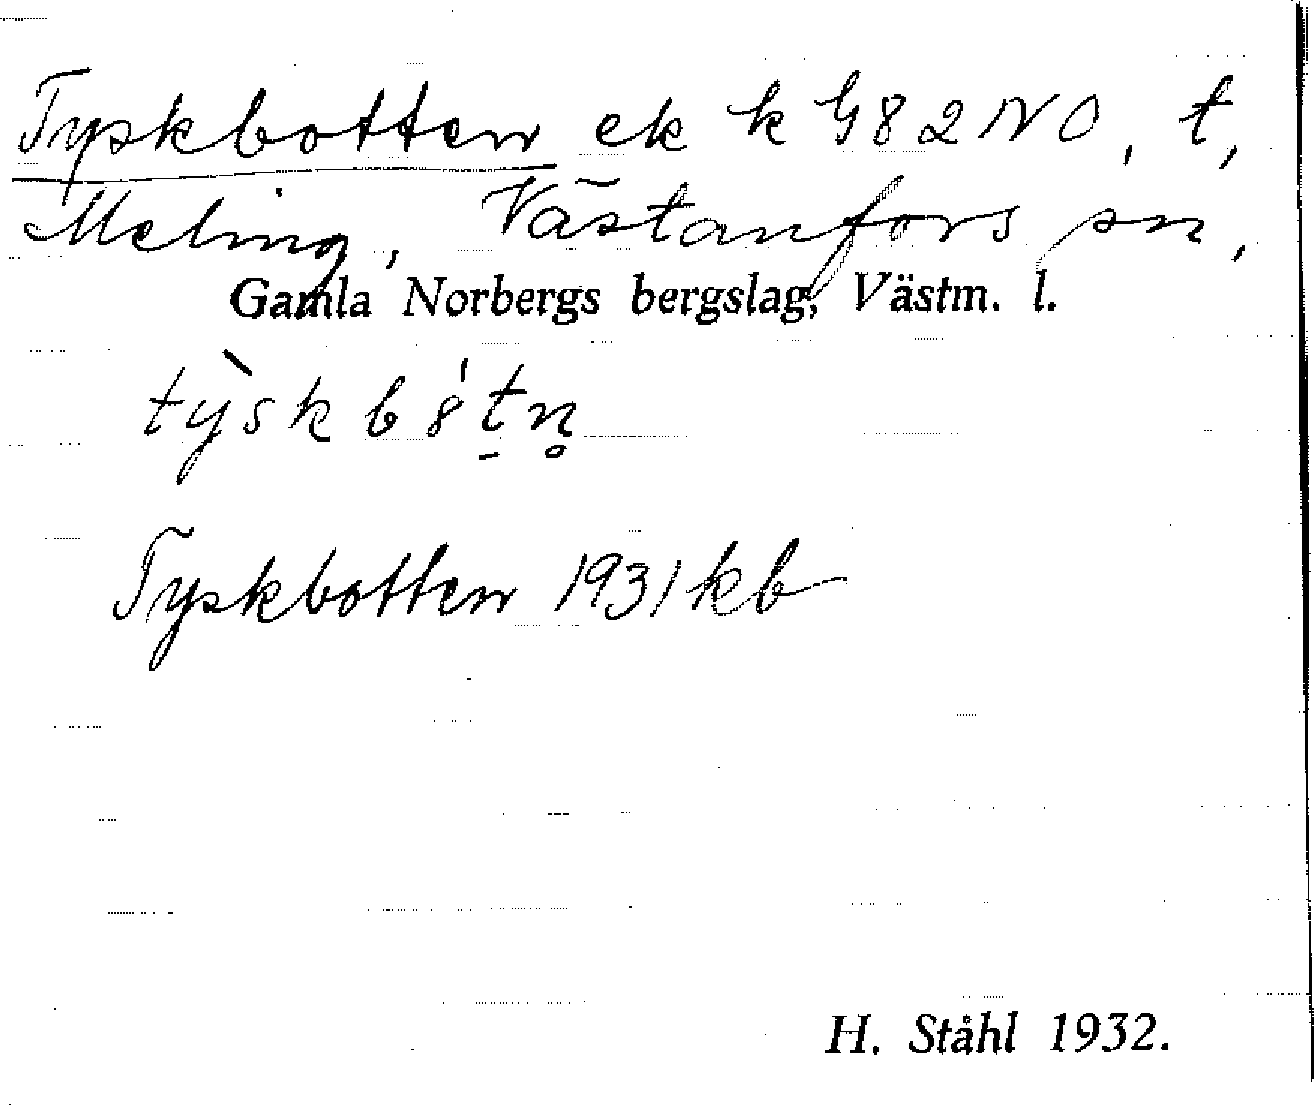 Tyskbotten ek k G82NO, t,
Meling, Västanfors sn,
Gamla Norbergs bergslag, Västm. l.
tỳskb8́t̠n̥
Tyskbotten 1931 kb
H. Ståhl 1932.